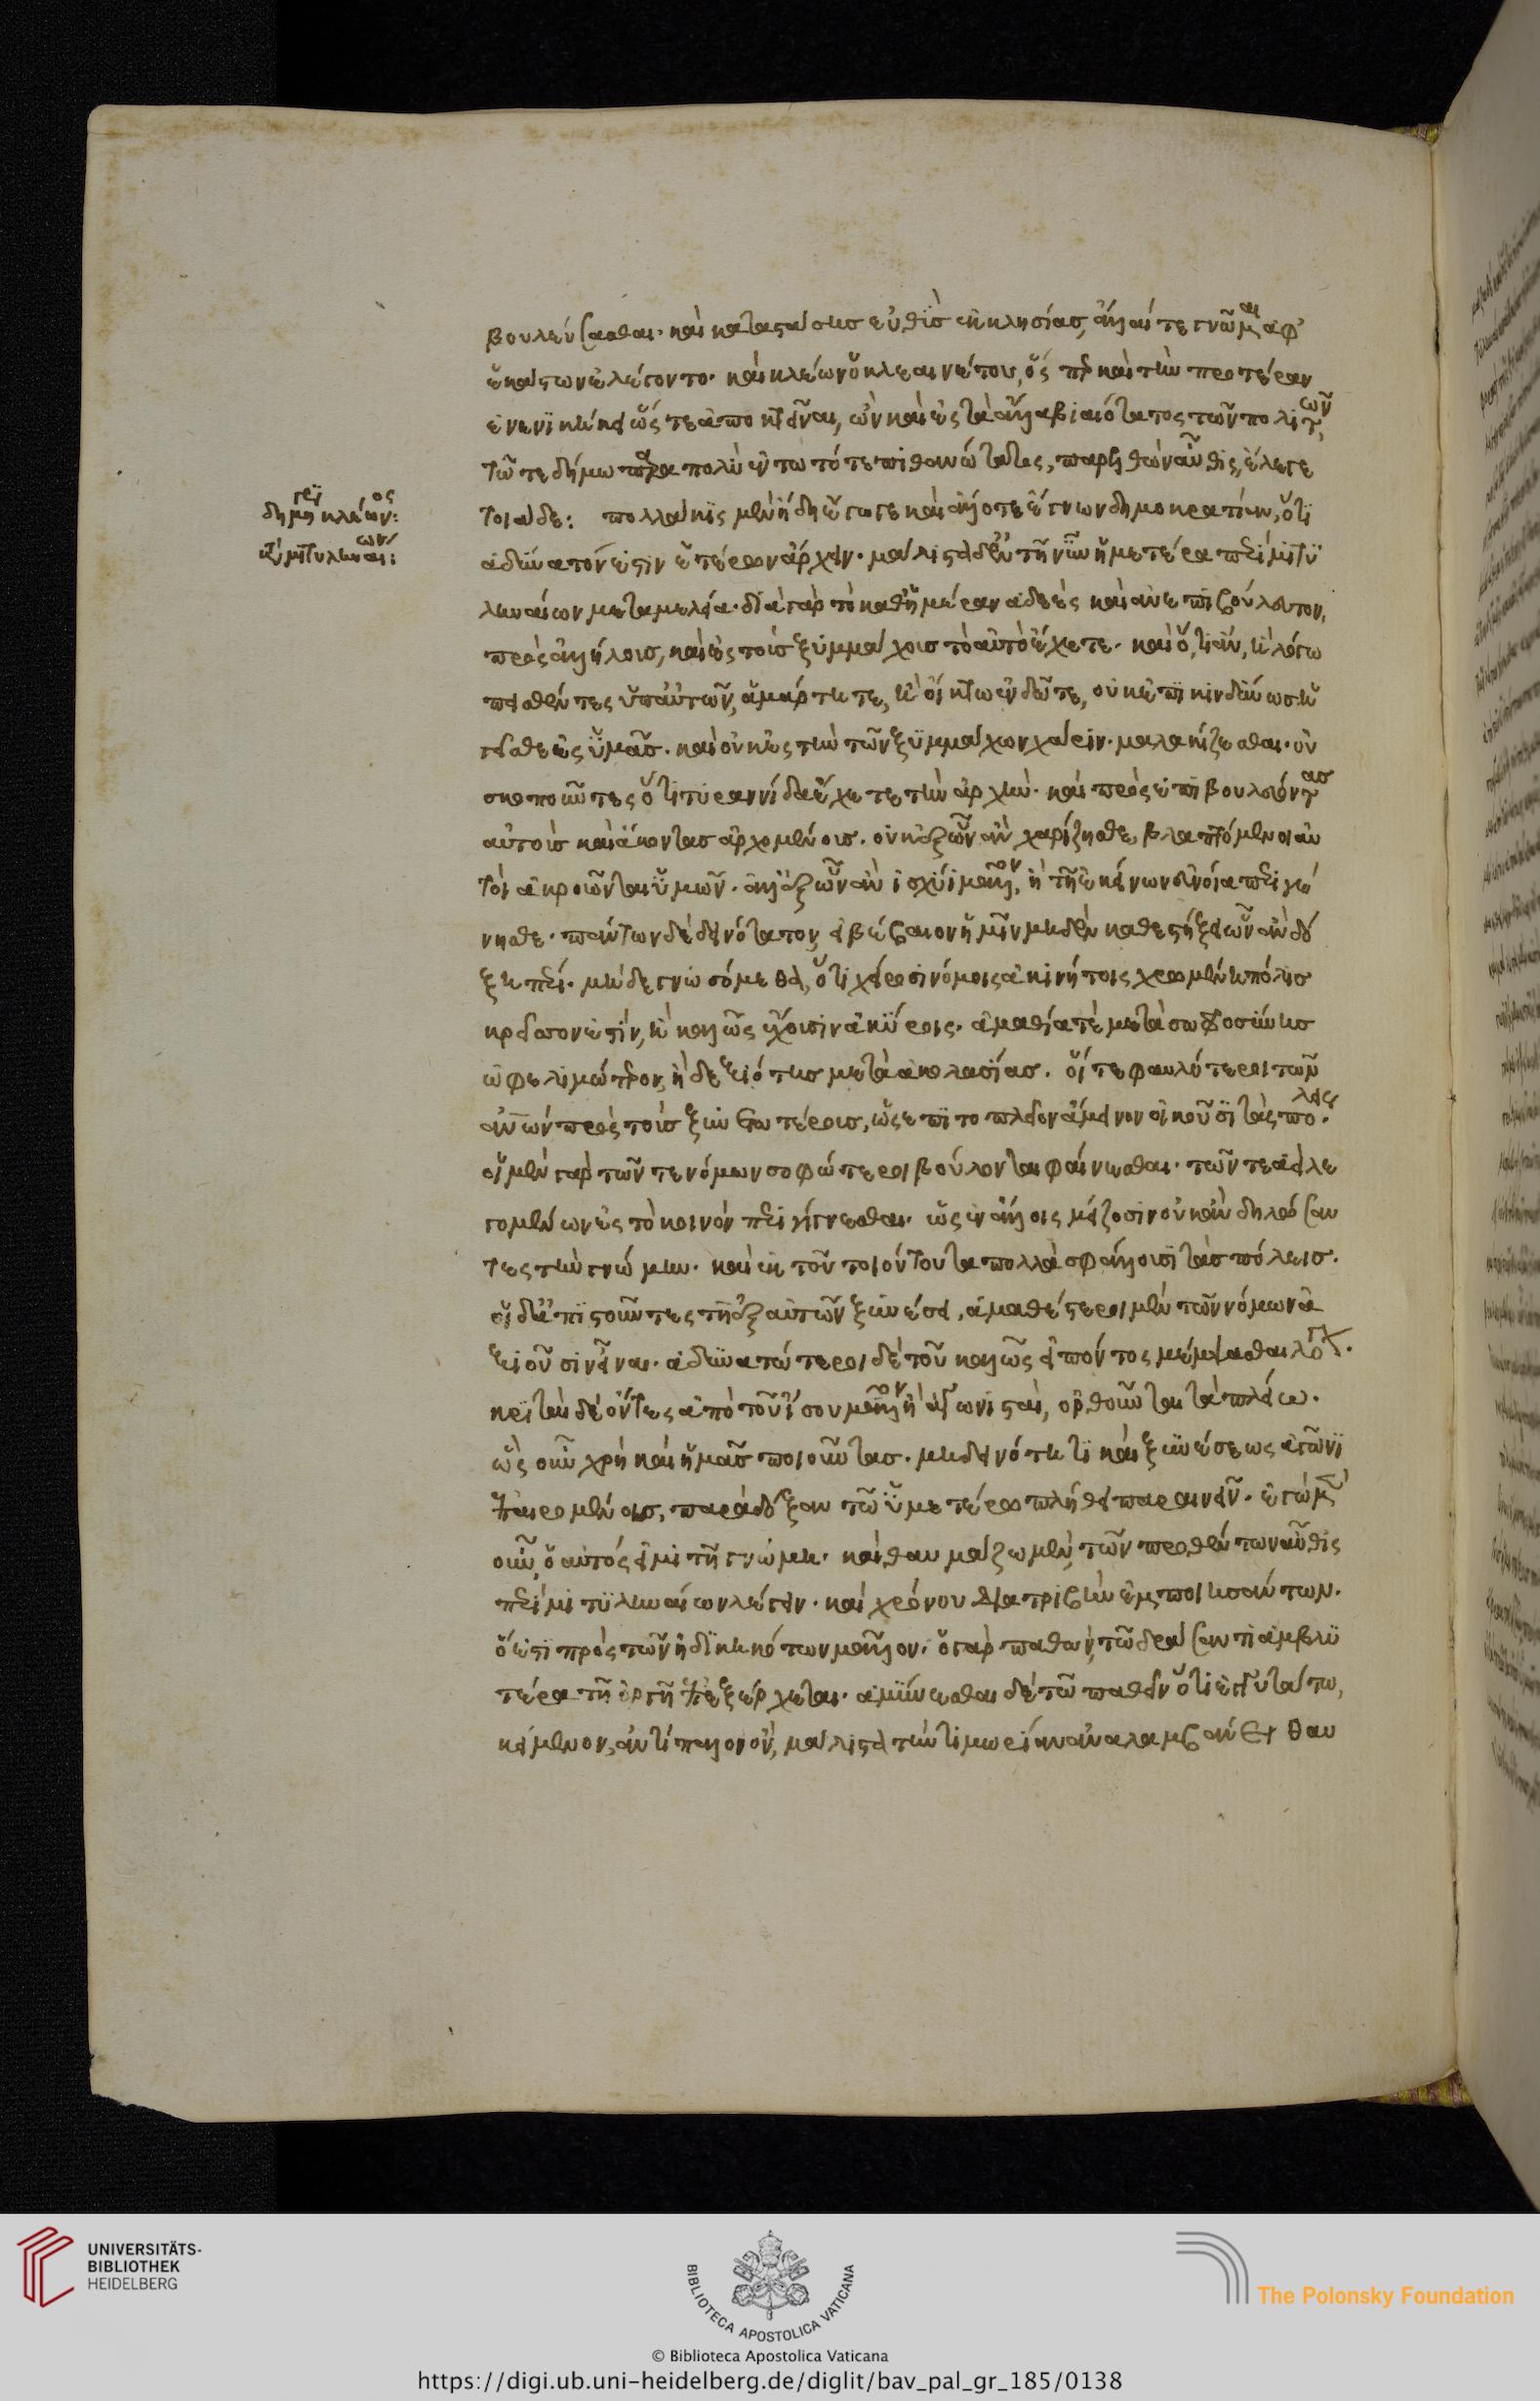 δημηγορία κλέωνος
περὶ μιτυληναίων:
βουλεύσασθαι. καὶ καταστάσης εὐθὺς ἐκκλησίας, ἄλλαι τε γνῶμαι ἀφ'
ἑκάστων ἐλέγοντο. καὶ κλέων ὁ κλεαινέτου, ὅς περ καὶ τὴν προτέραν
ἐνενικήκει ὥστε ἀποκτεῖναι, ὢν καὶ ἐς τὰ ἄλλα βιαιότατος τῶν πολιτῶν,
τῶ τε δήμω παρὰ πολὺ ἐν τῶ τότε πιθανώτατος, παρελθὼν αὖθις, ἔλεγε
τοιάδε: πολλάκις μὲν ἤδη ἔγωγε καὶ ἄλλοτε ἔγνων δημοκρατίαν, ὅτι
ἀδύνατόν ἐστιν ἑτέρων ἄρχειν. μάλιστα δ' ἐν τῆ νῦν ἡμετέρα περὶ μιτυ
ληναίων μεταμελεία. διὰ γὰρ τὸ καθ' ἡμέραν ἀδεὲς καὶ ἀνεπιβούλευτον,
πρὸς ἀλλήλους, καὶ ἐς τοὺς ξυμμάχους τὸ αὐτὸ ἔχετε. καὶ ὅ,τι ἂν, ἢ λόγω
πεισθέντες ὑπ' αὐτῶν, ἁμάρτητε, ἢ οἴκτω ἐνδῶτε, οὐκ ἐπικινδύνως ἡ
γεῖσθε ἐς ὑμᾶς. καὶ οὐκ ἐς τὴν τῶν ξυμμάχων χάριν. μαλακίζεσθαι. οὐ
σκοποῦντες ὅτι τυραννίδα ἔχετε τὴν ἀρχὴν. καὶ πρὸς ἐπιβουλεύοντας
αὐτοὺς καὶ ἄκοντας ἀρχομένους. οὐκ ἐξ ὧν ἂν χαρίζησθε, βλαπτόμενοι αὐ
τοὶ ἀκροῶνται ὑμῶν. ἀλλ' ἐξ ὧν ἂν ἰσχύι μᾶλλον, ἢ τῆ ἐκείνων εὐνοία περιγέ
νησθε. πάντων δὲ δεινότατον, εἰ βέβαιον ἡμῖν μηδὲν καθεστήξει ὧν ἂν δό
ξη πέρι. μηδὲ γνωσόμεθα, ὅτι χείροσι νόμοις ἀκινήτοις χρωμένη πόλις
κρείσσων ἐστίν, ἢ καλῶς ἔχουσιν ἀκύροις. ἀμαθία τὲ μετὰ σωφροσύνης
ὠφελιμώτερον, ἢ δεξιότης μετὰ ἀκολασίας. οἵ τε φαυλότεροι τῶν
ἀνθρώπων πρὸς τοὺς ξυνετωτέρους, ὡς ἐπὶ το πλεῖον ἄμεινον οἰκοῦσι τὰς πόλεις.
οἱ μὲν γὰρ τῶν τε νόμων σοφώτεροι βούλονται φαίνεσθαι. τῶν τε αἰεὶ λε
γομένων ἐς τὸ κοινὸν περιγίγνεσθαι. ὡς ἐν ἄλλοις μείζοσιν οὐκ ἂν δηλώσαν
τες τὴν γνώμην. καὶ ἐκ τοῦ τοιούτου τα πολλὰ σφάλλουσι τὰς πόλεις.
οἱ δ' ἀπιστοῦντες τῆ ἐξ αὑτῶν ξυνέσει, ἀμαθέστεροι μὲν τῶν νόμων ἀ
ξιοῦσιν εἶναι. ἀδυνατώτεροι δὲ τοῦ καλῶς εἰπόντος μέμψασθαι λόγον.
κριταὶ δὲ ὄντες ἀπὸ τοῦ ἴσου μᾶλλον ἢ ἀγωνισταὶ, ὀρθοῦνται τὰ πλείω.
ὣς οὖν χρὴ καὶ ἡμᾶς ποιοῦντας. μὴ δεινότητι καὶ ξυνέσεως ἀγῶνι
ἐπαιρομένους, παρὰ δόξαν τῶ ὑμετέρω πλήθει παραινεῖν. ἐγὼ μὲν
οὖν, ὁ αὐτός εἰμι τῆ γνώμη. καὶ θαυμάζω μὲν, τῶν προθέντων αὖθις
περὶ μιτυληναίων λέγειν. καὶ χρόνου διατριβὴν ἐμποιησάντων.
ὅ ἐστι πρὸς τῶν ἠδικηκότων μᾶλλον. ὁ γὰρ παθὼν, τῶ δράσαντι ἀμβλυ
τέρα τῆ ὀργῆ ἐπεξέρχεται. ἀμύνεσθαι δὲ τῶ παθεῖν ὅτι ἐγγυτάτω,
κείμενον, ἀντίπαλον ὂν, μάλιστα τὴν τιμωρίαν ἀναλαμβάνει. θαυ
UNIVERSITÄTS-
BIBLIOTHEK
HEIDELBERG
BIBLIOTECA APOSTOLICA VATICANA
The Polonsky Foundation
© Biblioteca Apostolica Vaticana
https://digi.ub.uni-heidelberg.de/diglit/bav_pal_gr_185/0138